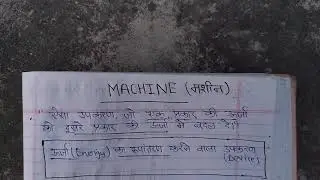 MACHINE (मशीन)
ऐसा उपकरण, जो एक प्रकार की ऊर्जा
को दूसरे प्रकार की ऊर्जा में बदल दे।
ऊर्जा (Energy) का रूपांतरण करने वाला उपकरण
(Device)